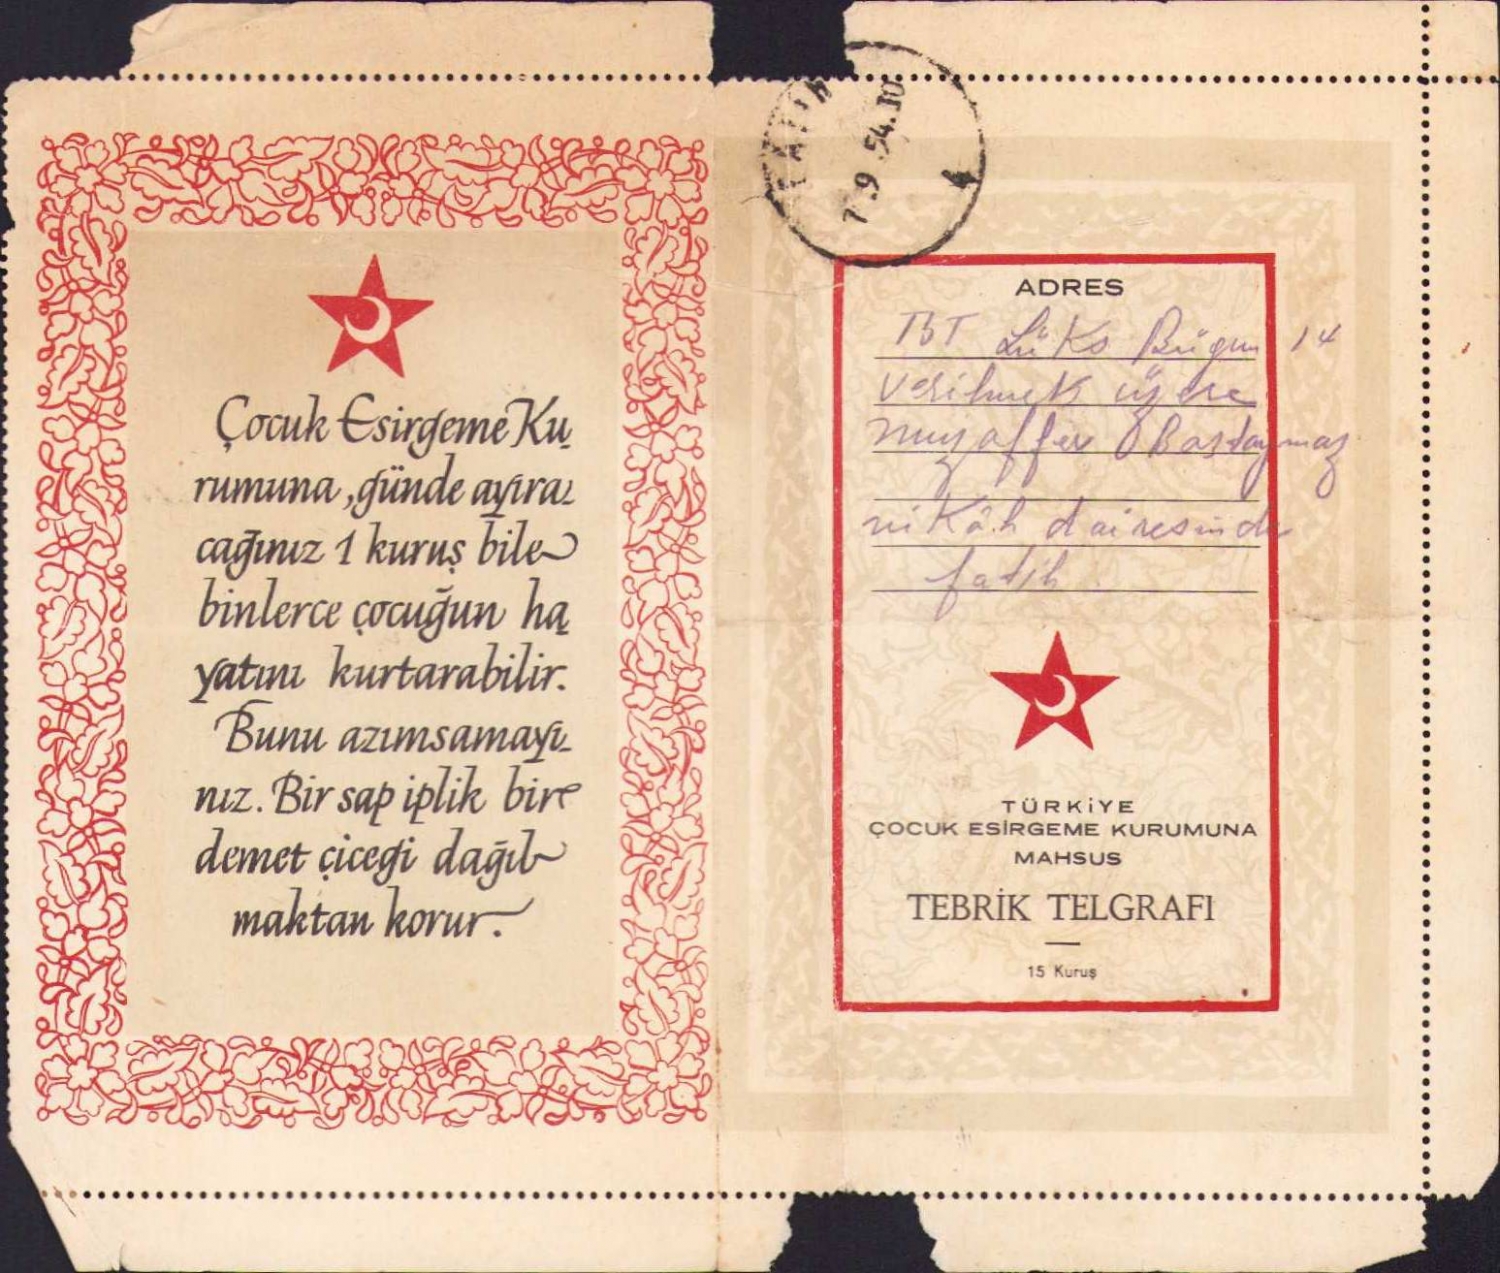 Çocuk Esirgeme Ku
rumuna, günde ayıra
cağınız 1 kuruş bile
binlerce çocuğun ha
yatını kurtarabilir.
Bunu azımsamayı
nız. Bir sap iplik bir
demet çiçeği dağıl
maktan korur.
FATİH
7.9.54.10
ADRES
TBT Lüks Bugün 14
verilmek üzere
muzaffer Bastaymaz
nikâh dairesinde
fatih.
TÜRKİYE
ÇOCUK ESİRGEME KURUMUNA
MAHSUS
TEBRİK TELGRAFI
15 Kuruş